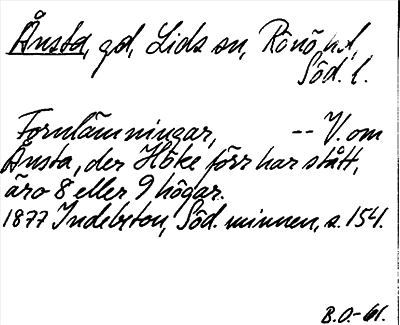 Ånsta, gd, Lids sn, Rönö hd,
Söd. l.
Fornlämningar, -- V. om
Ånsta, der Höke förr har stått,
äro 8 eller 9 högar.
1877 Indebetou, Söd. minnen, s. 154.
B.O.-61.